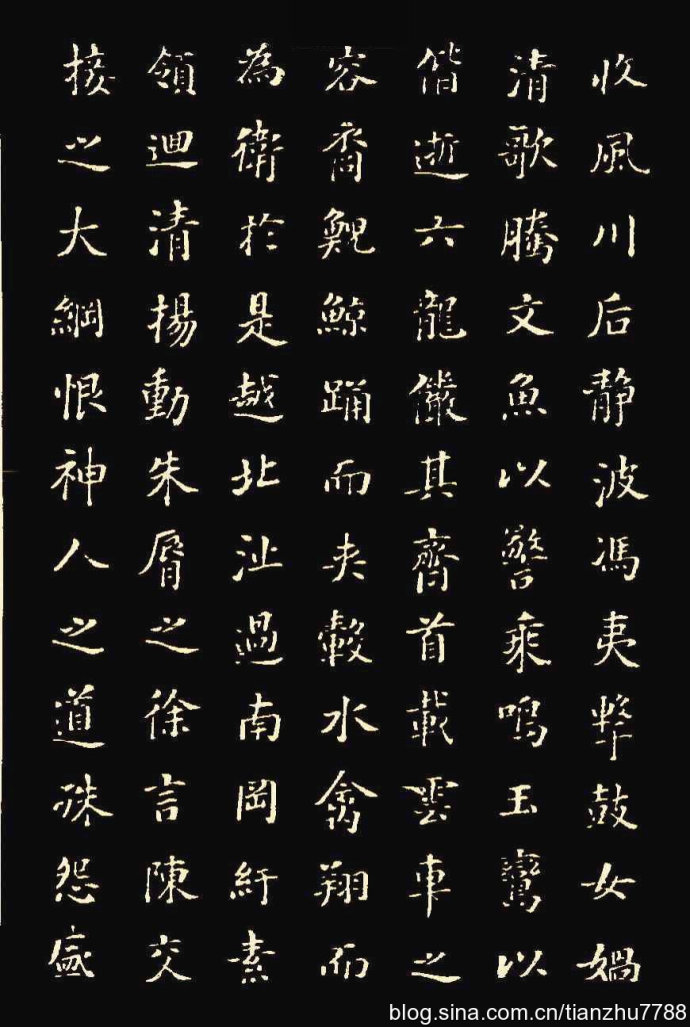 收風川后静波馮夷擊鼓女媧
清歌騰文魚以警乘鳴玉鸞以
偕逝六龍儼其齊首載雲車之
容裔鯢鯨踊而夾轂水禽翔而
為衛於是越北沚過南岡紆素
領迴清揚動朱脣之徐言陳交
接之大綱恨神人之道殊怨盛
blog.sina.com.cn/tianzhu7788